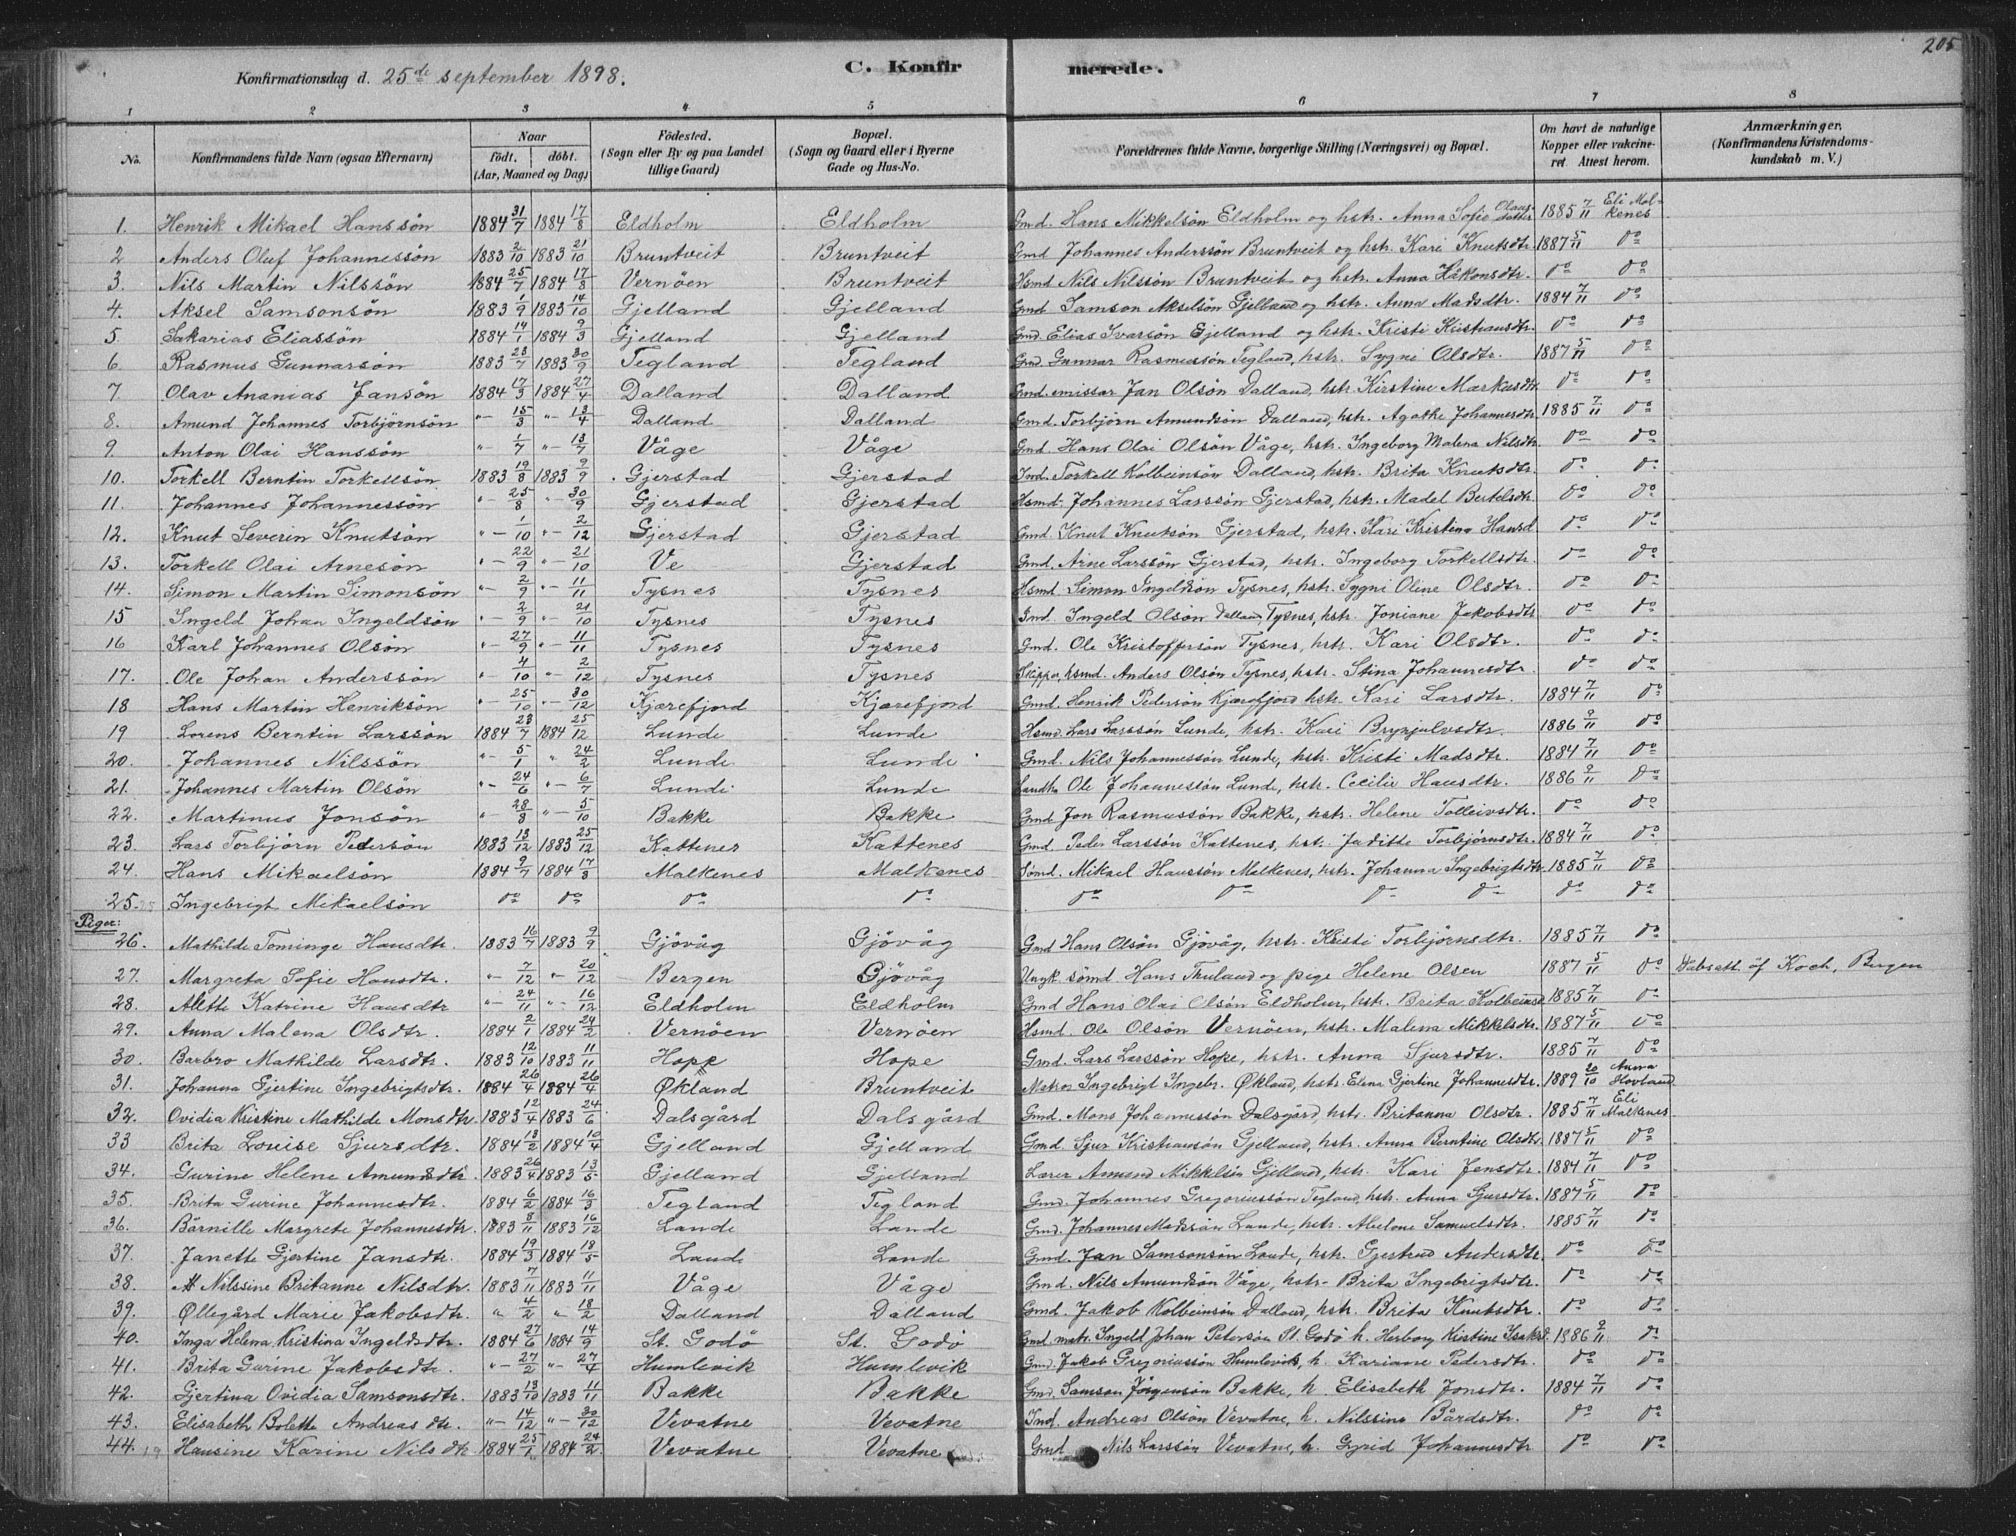 205
Konfirmationsdag d. 25de september 1898. C. Konfirmerede.
1 2 3 4 5 6 7 8
No. Konfirmandens fulde Navn (ogsaa Efternavn) Naar født, døbt. (Aar, Maaned og Dag) Fødested. (Sogn eller By og paa Landet tillige Gaard) Bopæl. (Sogn og Gaard eller i Byerne Gade og Hus-No. Forældrenes fulde Navne, borgerlige Stilling (Næringsvei) og Bopæl. Om havt de naturlige Kopper eller vakcineret. Attest herom. Anmærkninger. (Konfirmandens Kristendomskundskab m. V.)
1. Henrik Mikael Hanssön 1884 31/7 1884 17/8 Eldholm Eldholm Gmd. Hans Mikkelsön Eldholm og hstr. Anna Sofie Olausdatter 1885 7/11 Eli Malkenes
2 Anders Oluf Johannessön 1883 2/10 1883 21/10 Bruntveit Bruntveit Gmd Johannes Anderssön Bruntveit og hstr. Kari Knutsdtr. 1887 5/11 do
3. Nils Martin Nilssön 1884 25/7 1884 17/8 Vernöen Bruntveit Hsmd Nils Nilssön Bruntveit og hstr. Anna Håkonsdtr. do do
4. Aksel Samsonsön 1883 1/9 1883 14/10 Gjelland Gjelland Gmd. Samson Akselsön Gjelland og hstr. Anna Madsdtr. 1884 7/11 do
5 Sakarias Eliassön 1884 14/1 1884 9/3 Gjelland Gjelland Gmd. Elias Ivarsön Gjelland og hstr. Kristi Kristiansdtr. do do
6. Rasmus Gunnarsön 1883 23/7 1883 30/9 Tegland Tegland Gmd. Gunnar Rasmussön Tegland, hstr. Sygni Olsdtr. 1887 5/11 do
7. Olav Ananias Jansön 1884 17/3 1884 27/4 Dalland Dalland Gmd. emissær Jan Olsön Dalland, hstr. Kirstine Markusdtr. do do
8. Amund Johannes Torbjörnsön "- 15/3 "- 13/4 Dalland Dalland Gmd. Torbjörn Amundsön Dalland, hstr. Agathe Johannesdtr. 1885 7/11 do
9. Anton Olai Hanssön "- 1/7 "- 13/7 Våge Våge Gmd. Hans Olai Olsön Våge, hstr. Ingeborg Malena Nilsdtr. do do
10. Torkell Berntin Torkellsön 1883 19/8 1883 9/9 Gjerstad Gjerstad Ind. Torkell Kolbeinsön Dalland, hstr. Brita Knutsdtr. do do
11. Johannes Johannessön "- 25/8 "- 30/9 Gjerstad Gjerstad Hsmd. Johannes Larssön Gjerstad, hstr. Madel Bertelsdtr. do do
12. Knut Severin Knutsön "- 1/10 "- 2/12 Gjerstad Gjerstad Gmd. Knut Knutsön Gjerstad, hstr. Kari Kristina Hansd do do
13. Torkell Olai Arnesön "- 22/9 "- 21/10 Ve Gjerstad Gmd. Arne Larssön Gjerstad, hstr. Ingeborg Torkellsdtr. do do
14. Simon Martin Simonsön "- 2/9 "- 11/11 Tysnes Tysnes Hsmd. Simon Ingeldsön Tysnes, hstr. Sygni Oline Olsdtr. do do
15 Ingeld Johan Ingeldsön "- 2/9 "- 21/10 Tysnes Tysnes Ind. Ingeld Olsön Dalland Tysnes, hstr. Joniane Jakobsdtr. do do
16 Karl Johannes Olsön "- 27/9 "- 11/11 Tysnes Tysnes Gmd. Ole Kristoffersön Tysnes, hstr. Kari Olsdtr. do do
17. Ole Johan Anderssön "- 4/10 "- 2/12 Tysnes Tysnes Skipper, hsmd. Anders Olsön Tysnes, hstr. Stina Johannesdtr. do do
18 Hans Martin Henriksön "- 25/10 "- 30/12 Kjærefjord Kjærefjord Gmd. Henrik Pedersön Kjærefjord, hstr. Kari Larsdtr. 1884 7/11 do
19 Lorens Berntin Larssön 1884 23/7 1884 25/12 Lunde Lunde Hsmd. Lars Larssön Lunde, hstr. Kari Brynjulvsdtr. 1886 9/11 do
20. Johannes Nilssön "- 5/1 " 24/2 Lunde Lunde Gmd. Nils Johannessön Lunde, hstr. Kristi Madsdtr. 1884 7/11 do
21. Johannes Martin Olsön "- 24/6 "- 6/7 Lunde Lunde Landh. Ole Johannessön Lunde, hstr. Cecilie Hansdtr. 1886 9/11 do
22. Martinus Jonsön "- 28/8 "- 5/10 Bakke Bakke Gmd Jon Rasmussön Bakke, hstr. Helene Tolleivsdtr. do do
23. Lars Torbjörn Pedersön 1883 13/12 1883 25/12 Kattenes Kattenes Gmd. Peder Larssön Kattenes, hst. Juditte Torbjörnsdtr. 1884 7/11 do
24. Hans Mikaelsön 1884 9/7 1884 17/8 Malkenes Malkenes Sömd. Mikael Hanssön Malkenes, hstr. Johanna Ingebrigtsdtr. 1885 7/11 do
25. 25 Ingebrigt Mikaelsön do do do do do do do do do do
Piger:
26. Mathilde Tominge Hansdtr. 1883 16/7 1883 9/9 Gjövåg Gjövåg Gmd Hans Olsön Gjövåg, hstr. Kristi Torbjörnsdtr. 1885 7/11 do
27. Margreta Sofie Hansdtr. "- 7/12 "- 20/12 Bergen Gjövåg Ungk. sömd. Hans Thuland og pige Helene Olsen 1887 5/11 do Dabsatt. af Koch, Bergen
28. Alette Katrine Hansdtr "- 24/11 "- 16/12 Eldholm Eldholm Gmd Hans Olai Olsön Eldholm, hst. Brita Kolbeinsd 1885 7/11 do
29. Anna Malena Olsdtr. 1884 2/1 1884 24/2 Vernöen Vernöen Hsmd. Ole Olsön Vernöen, hstr. Malena Mikkelsdtr. 1887 5/11 do
30. Barbro Mathilde Larsdtr. 1883 12/10 1883 11/11 Hope Hope Gmd. Lars Larssön Hope, hstr. Anna Sjursdtr. 1885 7/11 do
31. Johanna Gjertine Ingebrigtsdtr. 1884 26/4 1884 26/4 Økland Bruntveit Matros Ingebrigt Ingebr. Økland, hstr. Elena Gjertine Johannesdtr. 1889 20/10 Anna Hovland
32. Ovidia Kristine Mathilde Monsdtr. 1883 12/4 1883 24/6 Dalsgård Dalsgård Gmd. Mons Johannessön Dalsgård, hstr. Britanna Olsdtr. 1885 7/11 Eli Malkenes
33 Brita Louise Sjursdtr. 1884 13/2 1884 10/4 Gjelland Gjelland Gmd. Sjur Kristiansön Gjelland, hstr. Anna Berntine Olsdtr. 1887 5/11 do
34. Gurine Helene Amundsdtr. 1883 26/4 1883 13/5 Gjelland Gjelland Lærer Amund Mikkelsön Gjelland, hstr. Kari Jensdtr. 1884 7/11 do
35. Brita Gurine Johannesdtr. 1884 6/2 1884 16/3 Tegland Tegland Gmd. Johannes Gregoriussön Tegland, hstr. Anna Sjursdtr. 1887 5/11 do
36. Bårnille Margrete Johannesdtr. 1883 8/11 1883 16/12 Lande Lande Gmd. Johannes Madssön Lande, hstr. Abelone Samuelsdtr. 1885 7/11 do
37. Janette Gjertine Jansdtr. 1884 19/3 1884 18/5 Lande Lande Gmd. Jan Samsonsön Lande, hstr. Gjertrud Andersdtr. do do
38. Nilssine Britanne Nilsdtr. 1883 7/11 1883 11/11 Våge Våge Gmd. Nils Amundsön Våge, hstr. Brita Ingebrigtsdtr. do do
39. Øllegård Marie Jakobsdtr. " 4/2 " 18/2 Dalland Dalland Gmd. Jakob Kolbeinsön Dalland, hst. Brita Knutsdtr. do do
40. Inga Helena Kristina Ingeldsdtr. 1884 27/6 1884 14/9 St. Godö St. Godö Gmd. matr. Ingeld Johan Petersön St. Godö h. Herborg Kistine Isaksd. 1886 9/11 do
41. Brita Gurine Jakobsdtr. "- 27/2 "- 27/4 Humlevik Humlevik Gmd. Jakob Gregoriussön Humlevik, h. Kariane Pedersdtr. do do
42. Gjertina Ovidia Samsonsdtr. 1883 13/10 1883 11/11 Bakke Bakke Gmd. Samson Jörgensön Bakke, h. Elisabeth Jonsdtr. 1884 7/11 do
43. Elisabeth Bolette Andreasdtr. "- 14/12 "- 30/12 Vevatne Vevatne Ind. Andreas Olsön Vevatne, h. Nilssine Bårdsdtr. do do
44. 19 Hansine Karine Nilsdtr 1884 25/1 1884 24/2 Vevatne Vevatne Gmd Nils Larssön Vevatne, h. Gjrid Johannesdtr do do